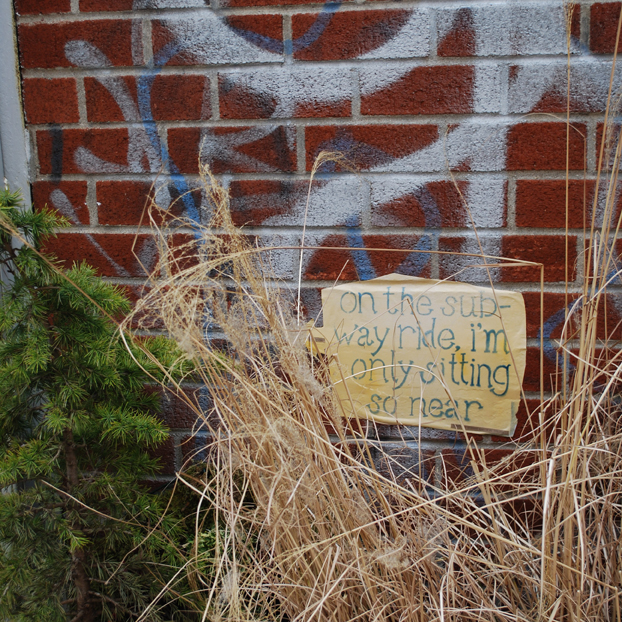 on the sub-
way ride, i'm
only sitting
so near